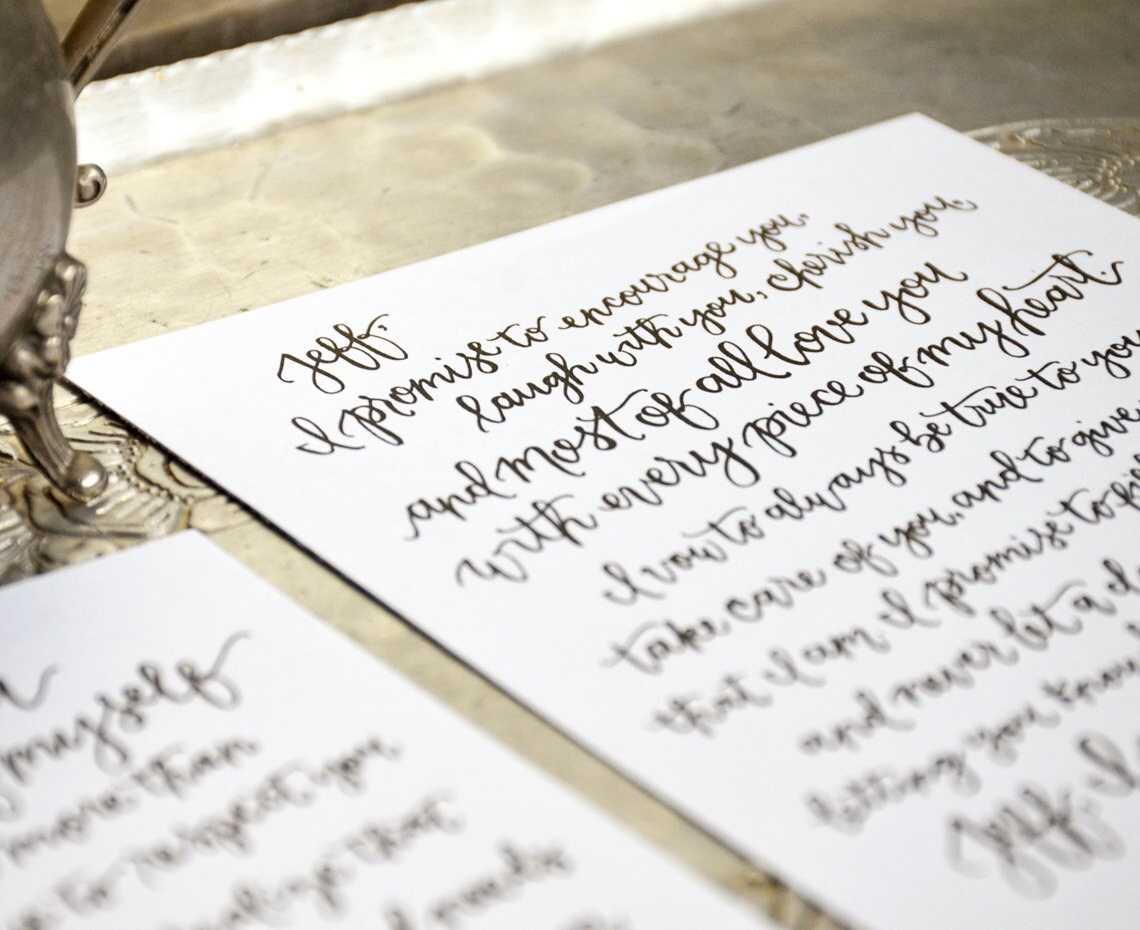 Jeff,
I promise to encourage you,
laugh with you, cherish you,
and most of all love you
with every piece of my heart.
I vow to always be true to you
take care of you, and to give
that I am I promise to
and never let a
letting you know
Jeff, I
myself
more than
to respect you
that